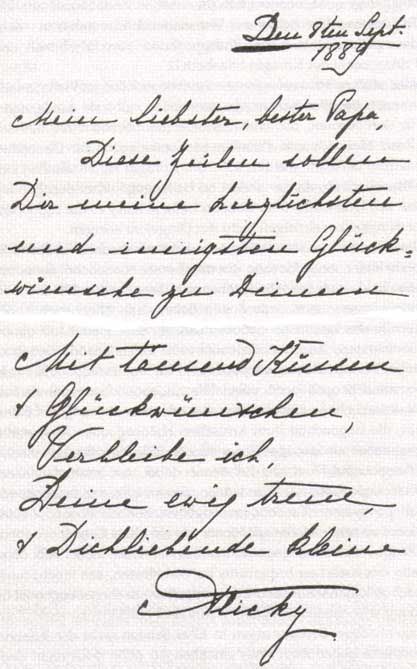 Den 8ten Sept.
1889
Mein liebster, bester Papa,
Diese Zeilen sollen
Dir meine herzlichsten
und innigsten Glück=
wünsche zu Deinem
Mit tausend Küssen
& Glückwünschen,
Verbleibe ich
Deine ewig treue,
& Dichliebende kleine
Alicky